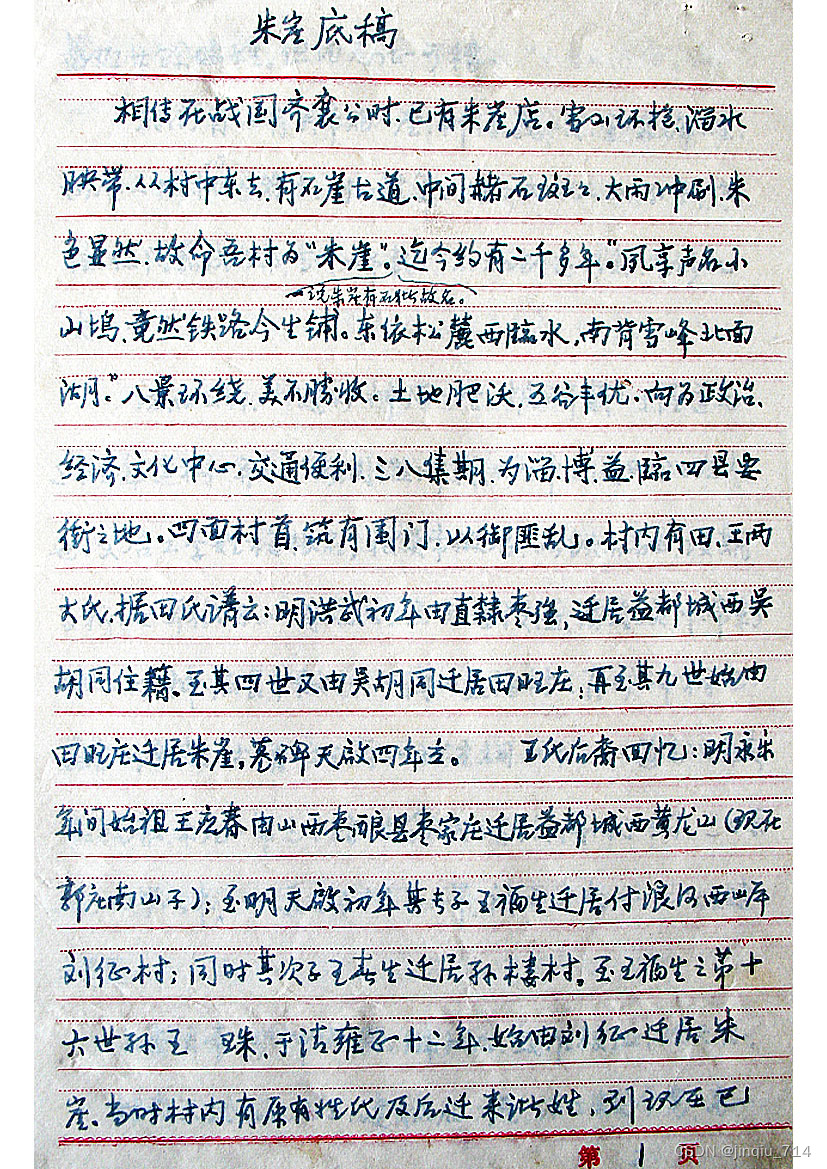 朱崖底稿
相传在战国齐襄公时、已有朱崖店。雪山环抱、淄水
映带、从村中东去、有石崖古道、中间赭石斑々、大雨冲刷、朱
色显然、故命吾村为“朱崖”。迄今约有二千多年。“夙享声名小
一说朱崖有石姓故名。
山坞、竟然铁路今生铺。东依松麓西临水，南背雪峰北面
湖。”八景环绕、美不勝收。土地肥沃、五谷丰优、向为政治、
经济、文化中心、交通便利、三八集期、为淄、博、益、临四县要
街之地。四面村首、筑有围门、以御匪乱。村内有田、王两
大氏、据田氏谱云：明洪武初年由直隸枣强，迁居益都城西吴
胡同住籍。至其四世又由吴胡同迁居田旺庄；再至其九世始由
田旺庄迁居朱崖，墓碑天啟四年立。 王氏后裔回忆：明永乐
年间始祖王 春由山西枣 县枣家庄迁居益都城西黄龙山（现在
郭庄南山子）；至明天啟初年其长子王福生迁居付浪河西岸
刘征村；同时其次子王春生迁居孙楼村。至王福生之第十
六世孙王 珠、于清雍正十二年、始由刘征迁居朱
崖、当时村内有原有姓氏及后迁来诸姓，到现在已
第 1 页
CSDN @jinqiu_714